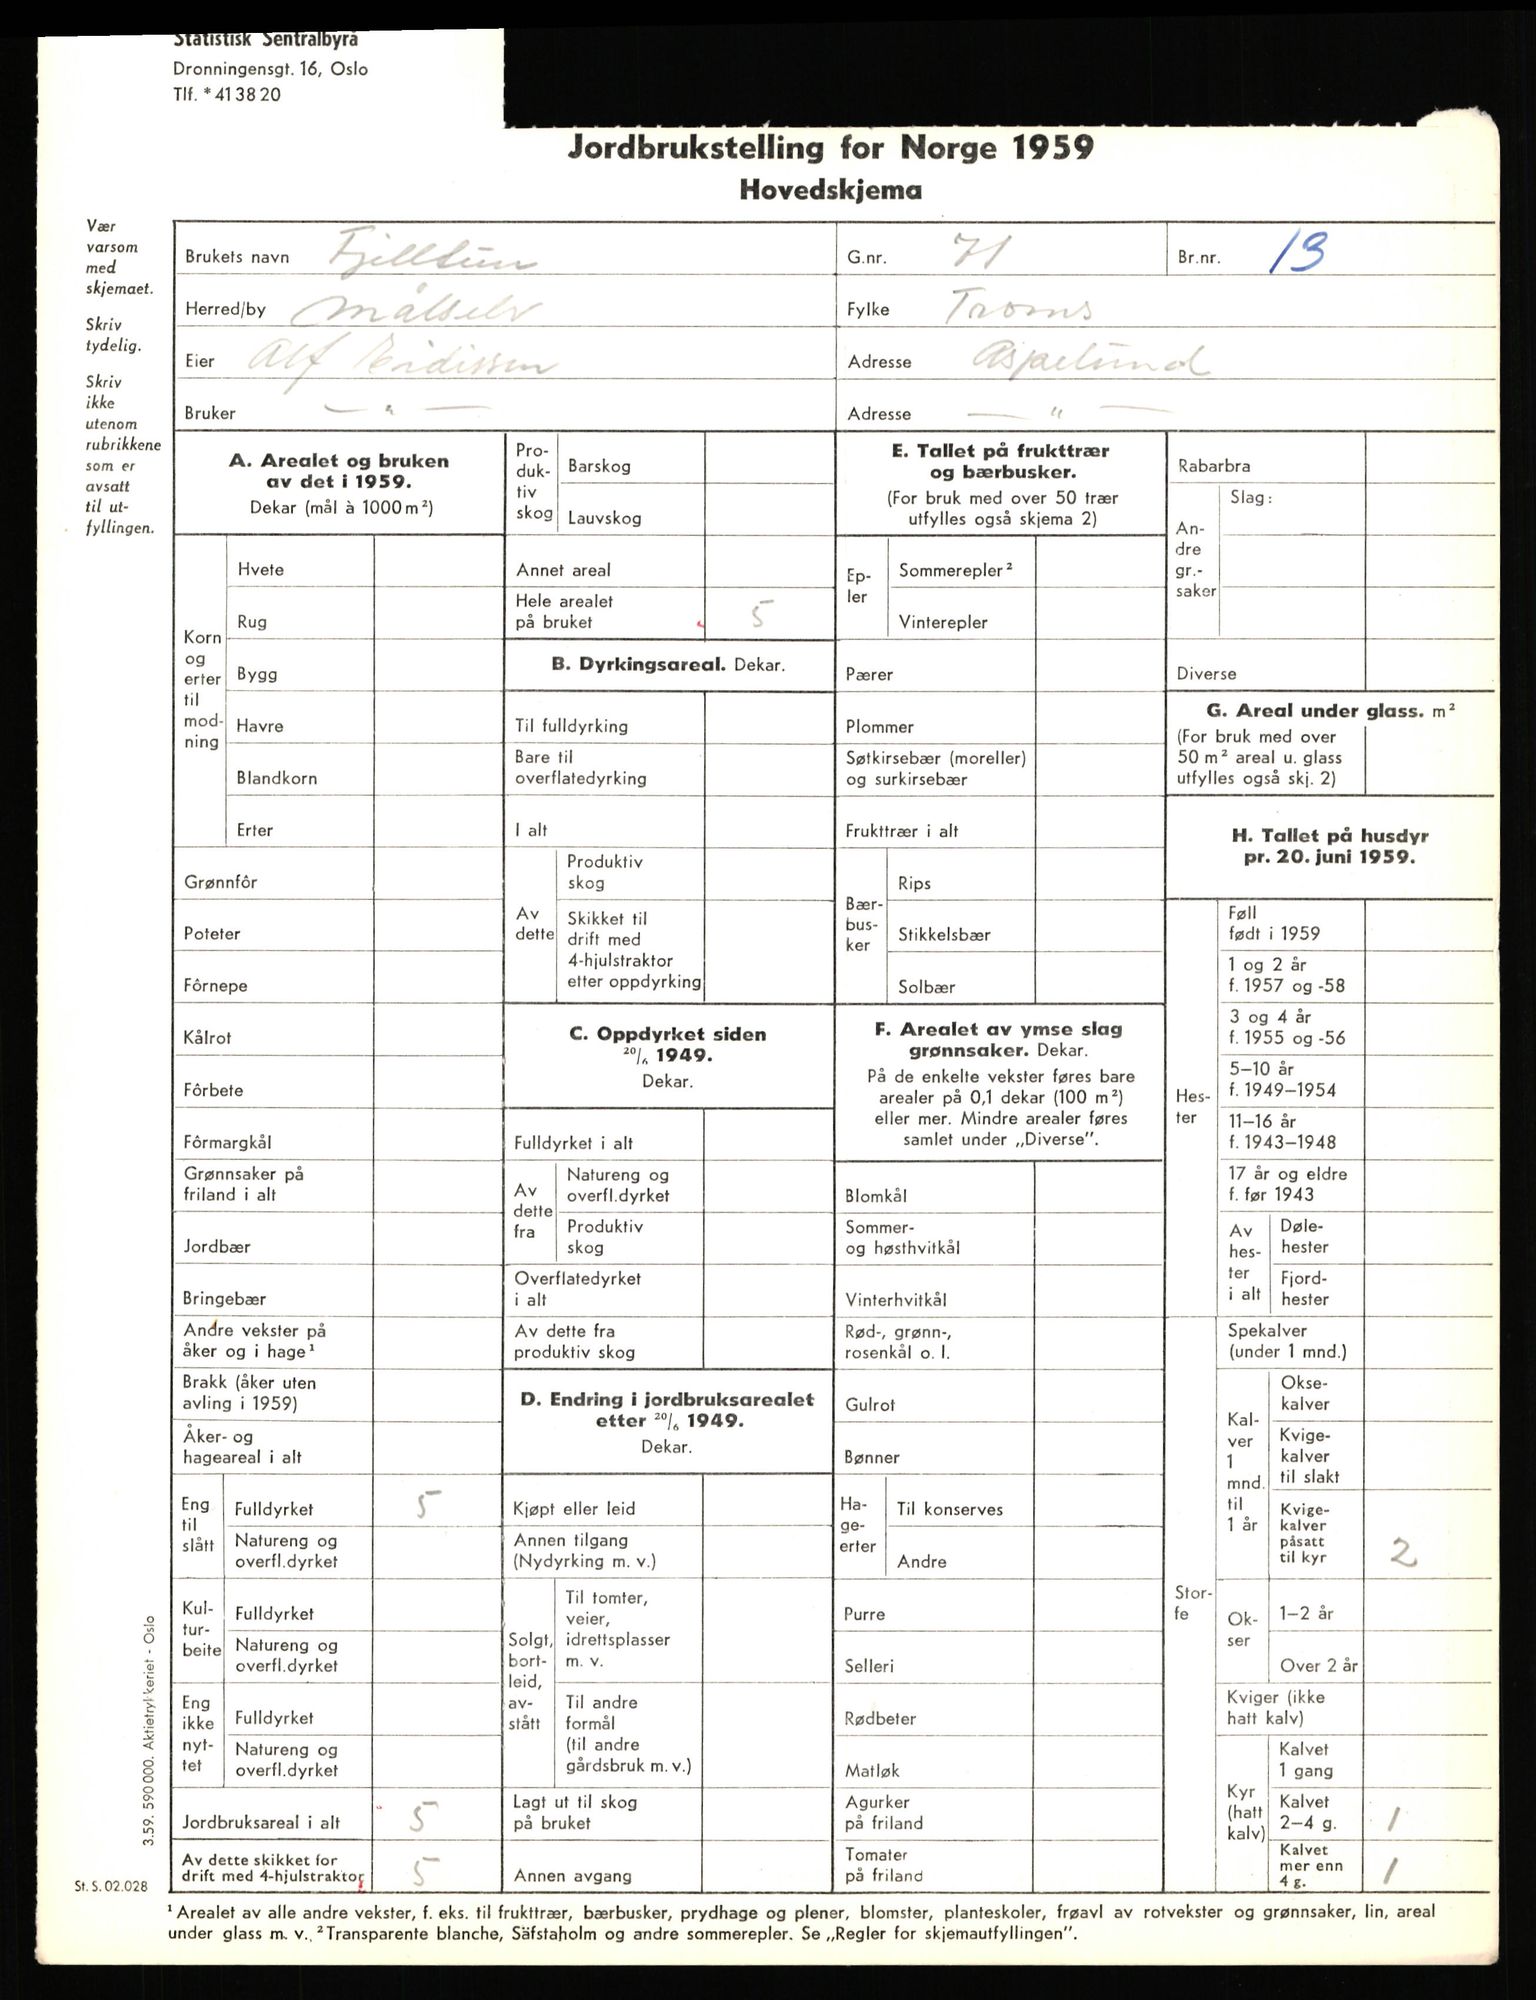 Statistisk Sentralbyrå
Dronningensgt. 16, Oslo
Tlf. * 41 38 20
Jordbrukstelling for Norge 1959
Hovedskjema
Vær
varsom
med
skjemaet.
Skriv
tydelig.
Skriv
ikke
utenom
rubrikkene
som er
avsatt
til ut-
fyllingen.
Brukets navn Fjelltun
G.nr. 71
Br.nr. 13
Herred/by Målselv
Fylke Troms
Eier Alf
Adresse Aspelund
Bruker — " —
Adresse — " —
A. Arealet og bruken
av det i 1959.
Dekar (mål à 1000 m²)
Korn
og
erter
til
mod-
ning
Hvete
Rug
Bygg
Havre
Blandkorn
Erter
Grønnfôr
Poteter
Fôrnepe
Kålrot
Fôrbete
Fôrmargkål
Grønnsaker på
friland i alt
Jordbær
Bringebær
Andre vekster på
åker og i hage¹
Brakk (åker uten
avling i 1959)
Åker- og
hageareal i alt
Eng
til
slått
Fulldyrket 5
Natureng og
overfl.dyrket
Kul-
tur-
beite
Fulldyrket
Natureng og
overfl.dyrket
Eng
ikke
nyt-
tet
Fulldyrket
Natureng og
overfl.dyrket
Jordbruksareal i alt 5
Av dette skikket for
drift med 4-hjulstraktor 5
Pro-
duk-
tiv
skog
Barskog
Lauvskog
Annet areal
Hele arealet
på bruket 5
B. Dyrkingsareal. Dekar.
Til fulldyrking
Bare til
overflatedyrking
I alt
Av
dette
Produktiv
skog
Skikket til
drift med
4-hjulstraktor
etter oppdyrking
C. Oppdyrket siden
20/6 1949.
Dekar.
Fulldyrket i alt
Av
dette
fra
Natureng og
overfl.dyrket
Produktiv
skog
Overflatedyrket
i alt
Av dette fra
produktiv skog
D. Endring i jordbruksarealet
etter 20/6 1949.
Dekar.
Kjøpt eller leid
Annen tilgang
(Nydyrking m. v.)
Solgt,
bort-
leid,
av-
stått
Til tomter,
veier,
idrettsplasser
m. v.
Til andre
formål
(til andre
gårdsbruk m. v.)
Lagt ut til skog
på bruket
Annen avgang
E. Tallet på frukttrær
og bærbusker.
(For bruk med over 50 trær
utfylles også skjema 2)
Ep-
ler
Sommerepler²
Vinterepler
Pærer
Plommer
Søtkirsebær (moreller)
og surkirsebær
Frukttrær i alt
Bær-
bus-
ker
Rips
Stikkelsbær
Solbær
F. Arealet av ymse slag
grønnsaker. Dekar.
På de enkelte vekster føres bare
arealer på 0,1 dekar (100 m²)
eller mer. Mindre arealer føres
samlet under „Diverse”.
Blomkål
Sommer-
og høsthvitkål
Vinterhvitkål
Rød-, grønn-,
rosenkål o. l.
Gulrot
Bønner
Ha-
ge-
erter
Til konserves
Andre
Purre
Selleri
Rødbeter
Matløk
Agurker
på friland
Tomater
på friland
Rabarbra
An-
dre
gr.-
saker
Slag:
Diverse
G. Areal under glass. m²
(For bruk med over
50 m² areal u. glass
utfylles også skj. 2)
H. Tallet på husdyr
pr. 20. juni 1959.
Hes-
ter
Føll
født i 1959
1 og 2 år
f. 1957 og -58
3 og 4 år
f. 1955 og -56
5–10 år
f. 1949–1954
11–16 år
f. 1943–1948
17 år og eldre
f. før 1943
Av
hes-
ter
i alt
Døle-
hester
Fjord-
hester
Stor-
fe
Spekalver
(under 1 mnd.)
Kal-
ver
1
mnd.
til
1 år
Okse-
kalver
Kvige-
kalver
til slakt
Kvige-
kalver
påsatt
til kyr 2
Ok-
ser
1–2 år
Over 2 år
Kviger (ikke
hatt kalv)
Kyr
(hatt
kalv)
Kalvet
1 gang
Kalvet
2–4 g. 1
Kalvet
mer enn
4 g. 1
3.59. 590 000. Aktietrykkeriet - Oslo
St. S. 02.028
¹ Arealet av alle andre vekster, f. eks. til frukttrær, bærbusker, prydhage og plener, blomster, planteskoler, frøavl av rotvekster og grønnsaker, lin, areal
under glass m. v. ² Transparente blanche, Säfstaholm og andre sommerepler. Se „Regler for skjemautfyllingen”.